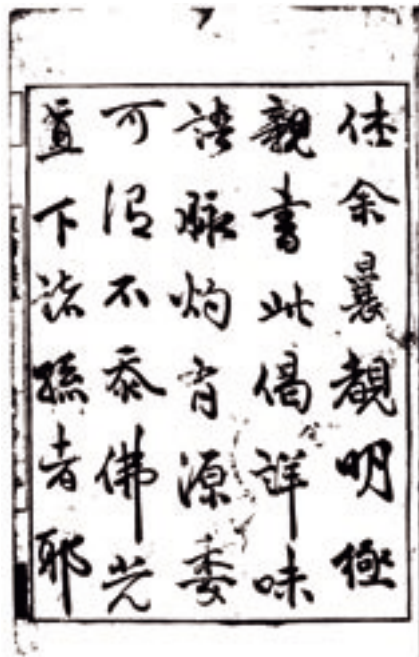 佳余曩覩明極
親書此偈詳味
語脈灼有源委
可謂不忝佛光
直下諸孫者耶